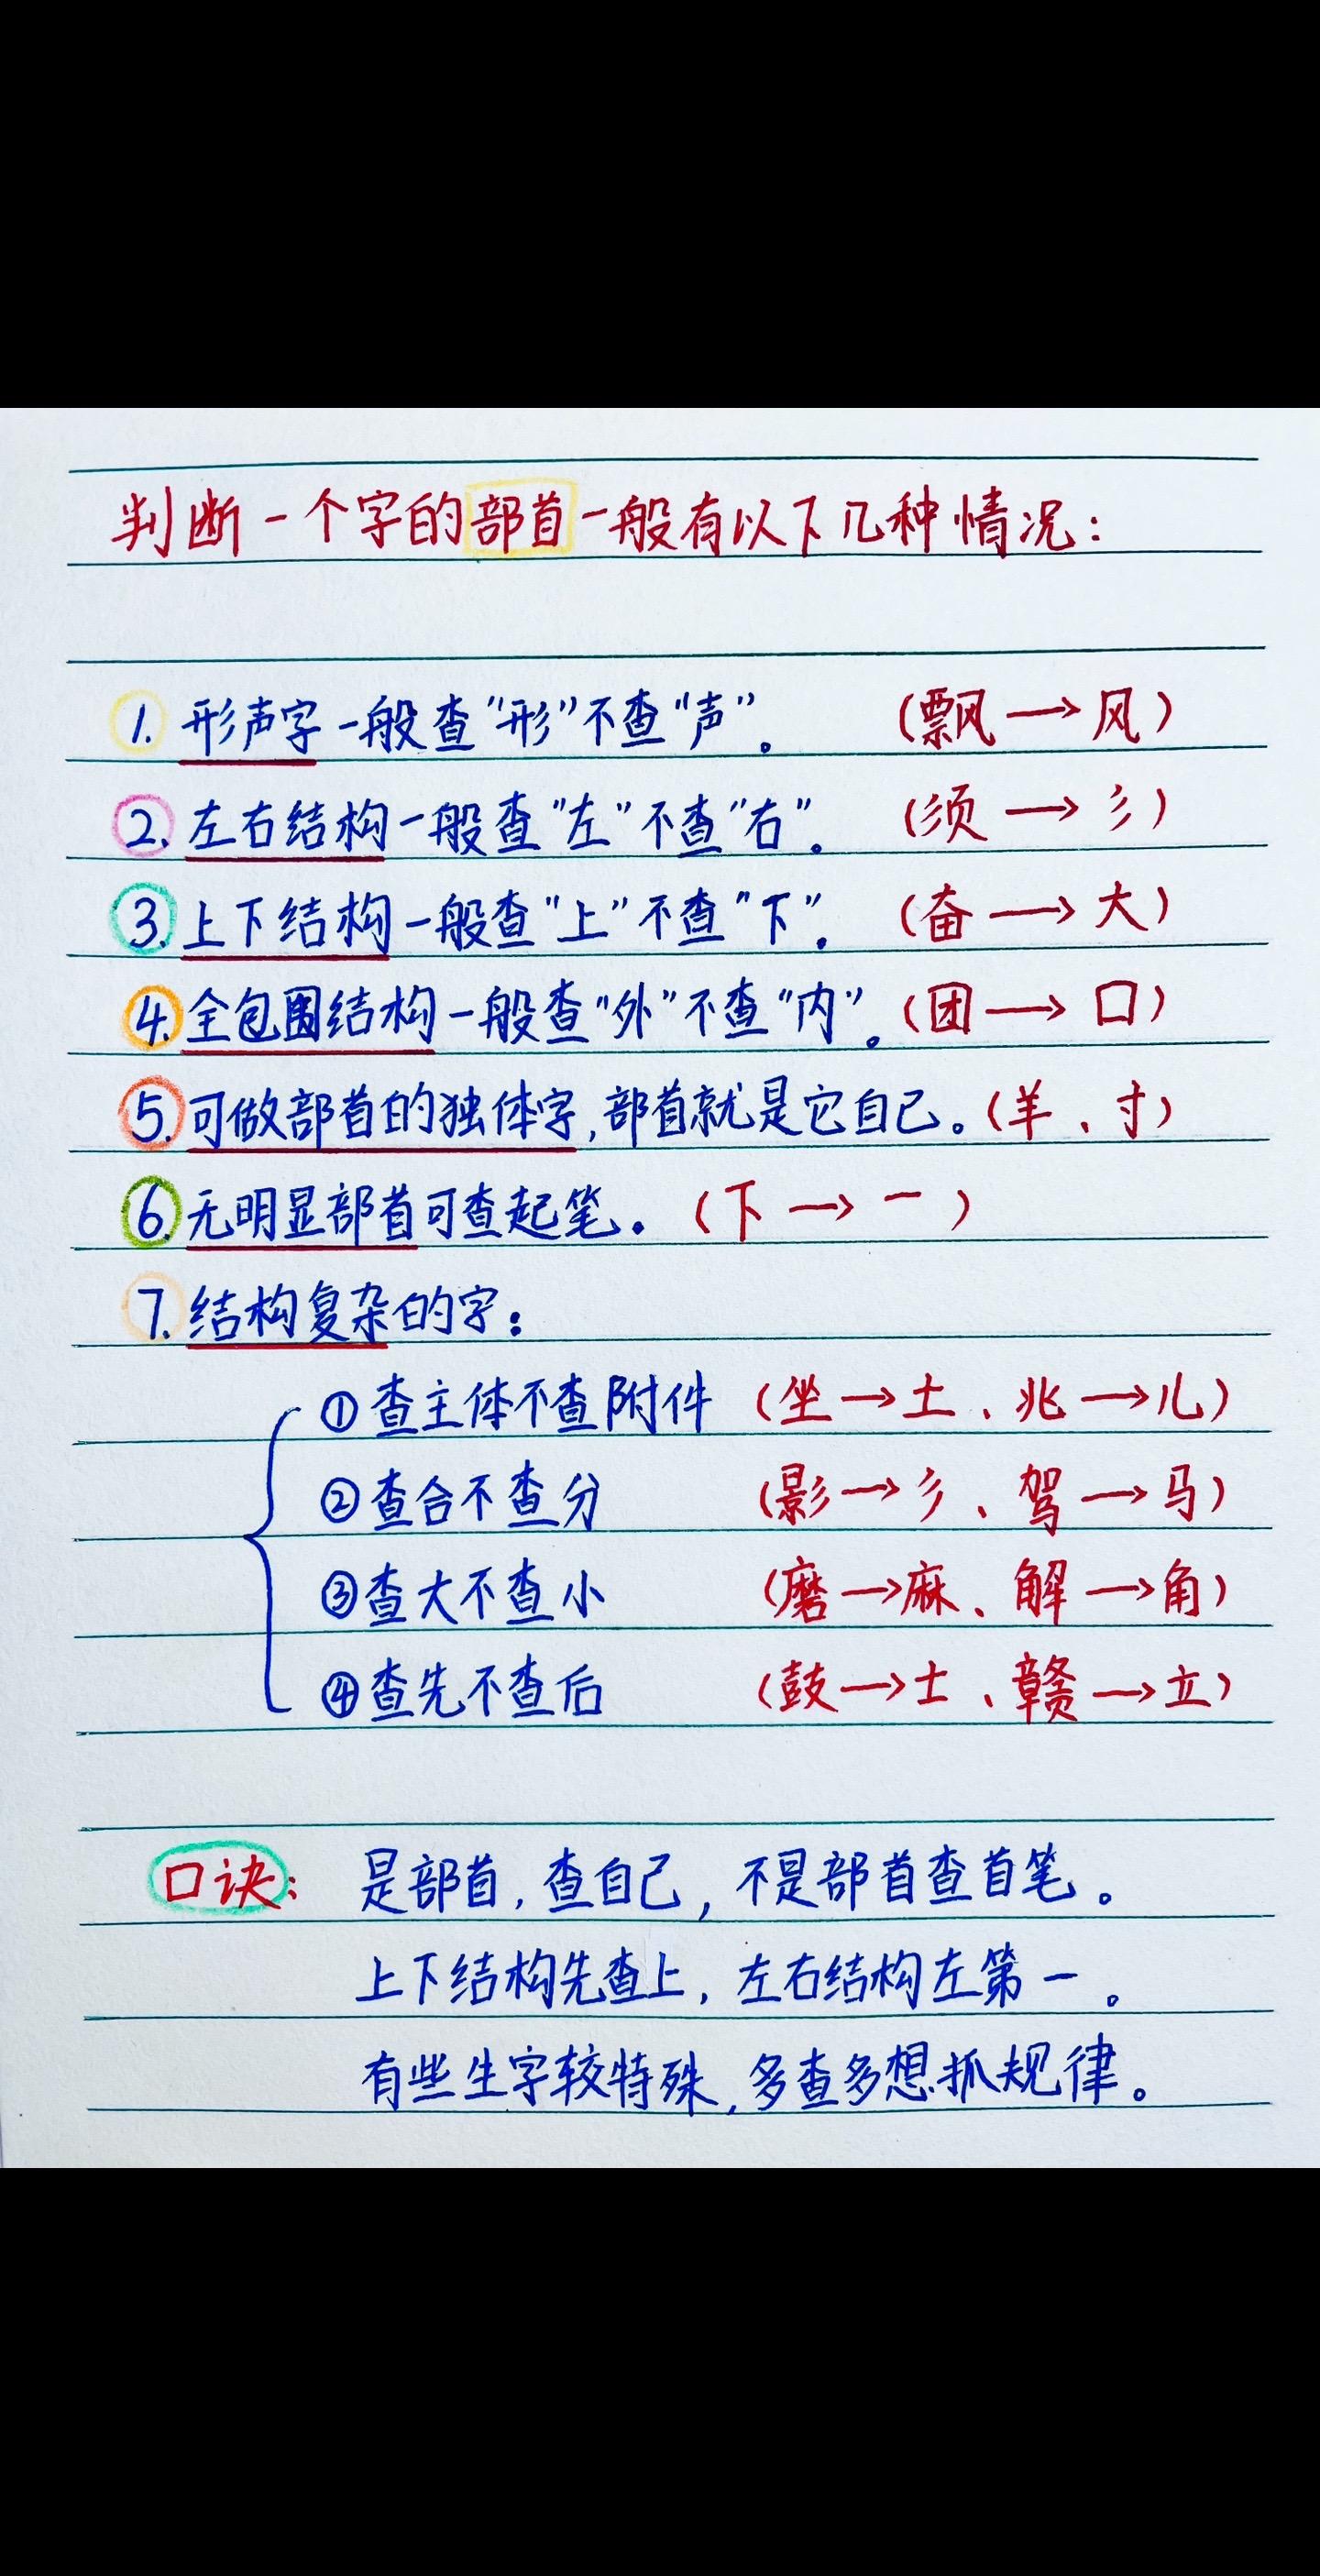 判断一个字的部首一般有以下几种情况：
1. 形声字一般查“形”不查“声”。 （飘→风）
2. 左右结构一般查“左”不查“右”。 （须→彡）
3. 上下结构一般查“上”不查“下”。 （奋→大）
4. 全包围结构一般查“外”不查“内”。（团→口）
5. 可做部首的独体字，部首就是它自己。（羊、寸）
6. 无明显部首可查起笔。（下→一）
7. 结构复杂的字：
①查主体不查附件 （坐→土、兆→儿）
②查合不查分 （影→彡、驾→马）
③查大不查小 （磨→麻、解→角）
④查先不查后 （鼓→士、赣→立）
口诀： 是部首，查自己，不是部首查首笔。
上下结构先查上，左右结构左第一。
有些生字较特殊，多查多想抓规律。